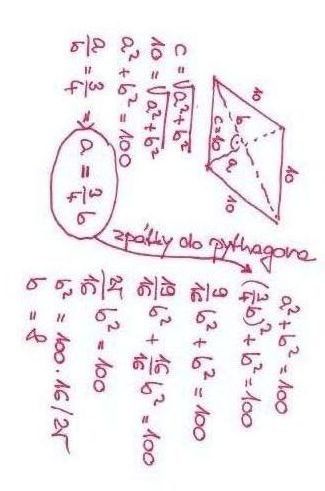 10
10
10
c=10
b
a
c = √a²+b²
10 = √a²+b²
a²+b² = 100
a/b = 3/4 ⇒ a = 3/4 b
zpátky do pythagora
a²+b² = 100
(3/4 b)² + b² = 100
9/16 b² + b² = 100
19/16 b² + 16/16 b² = 100
25/16 b² = 100
b² = 100 · 16/25
b = 8